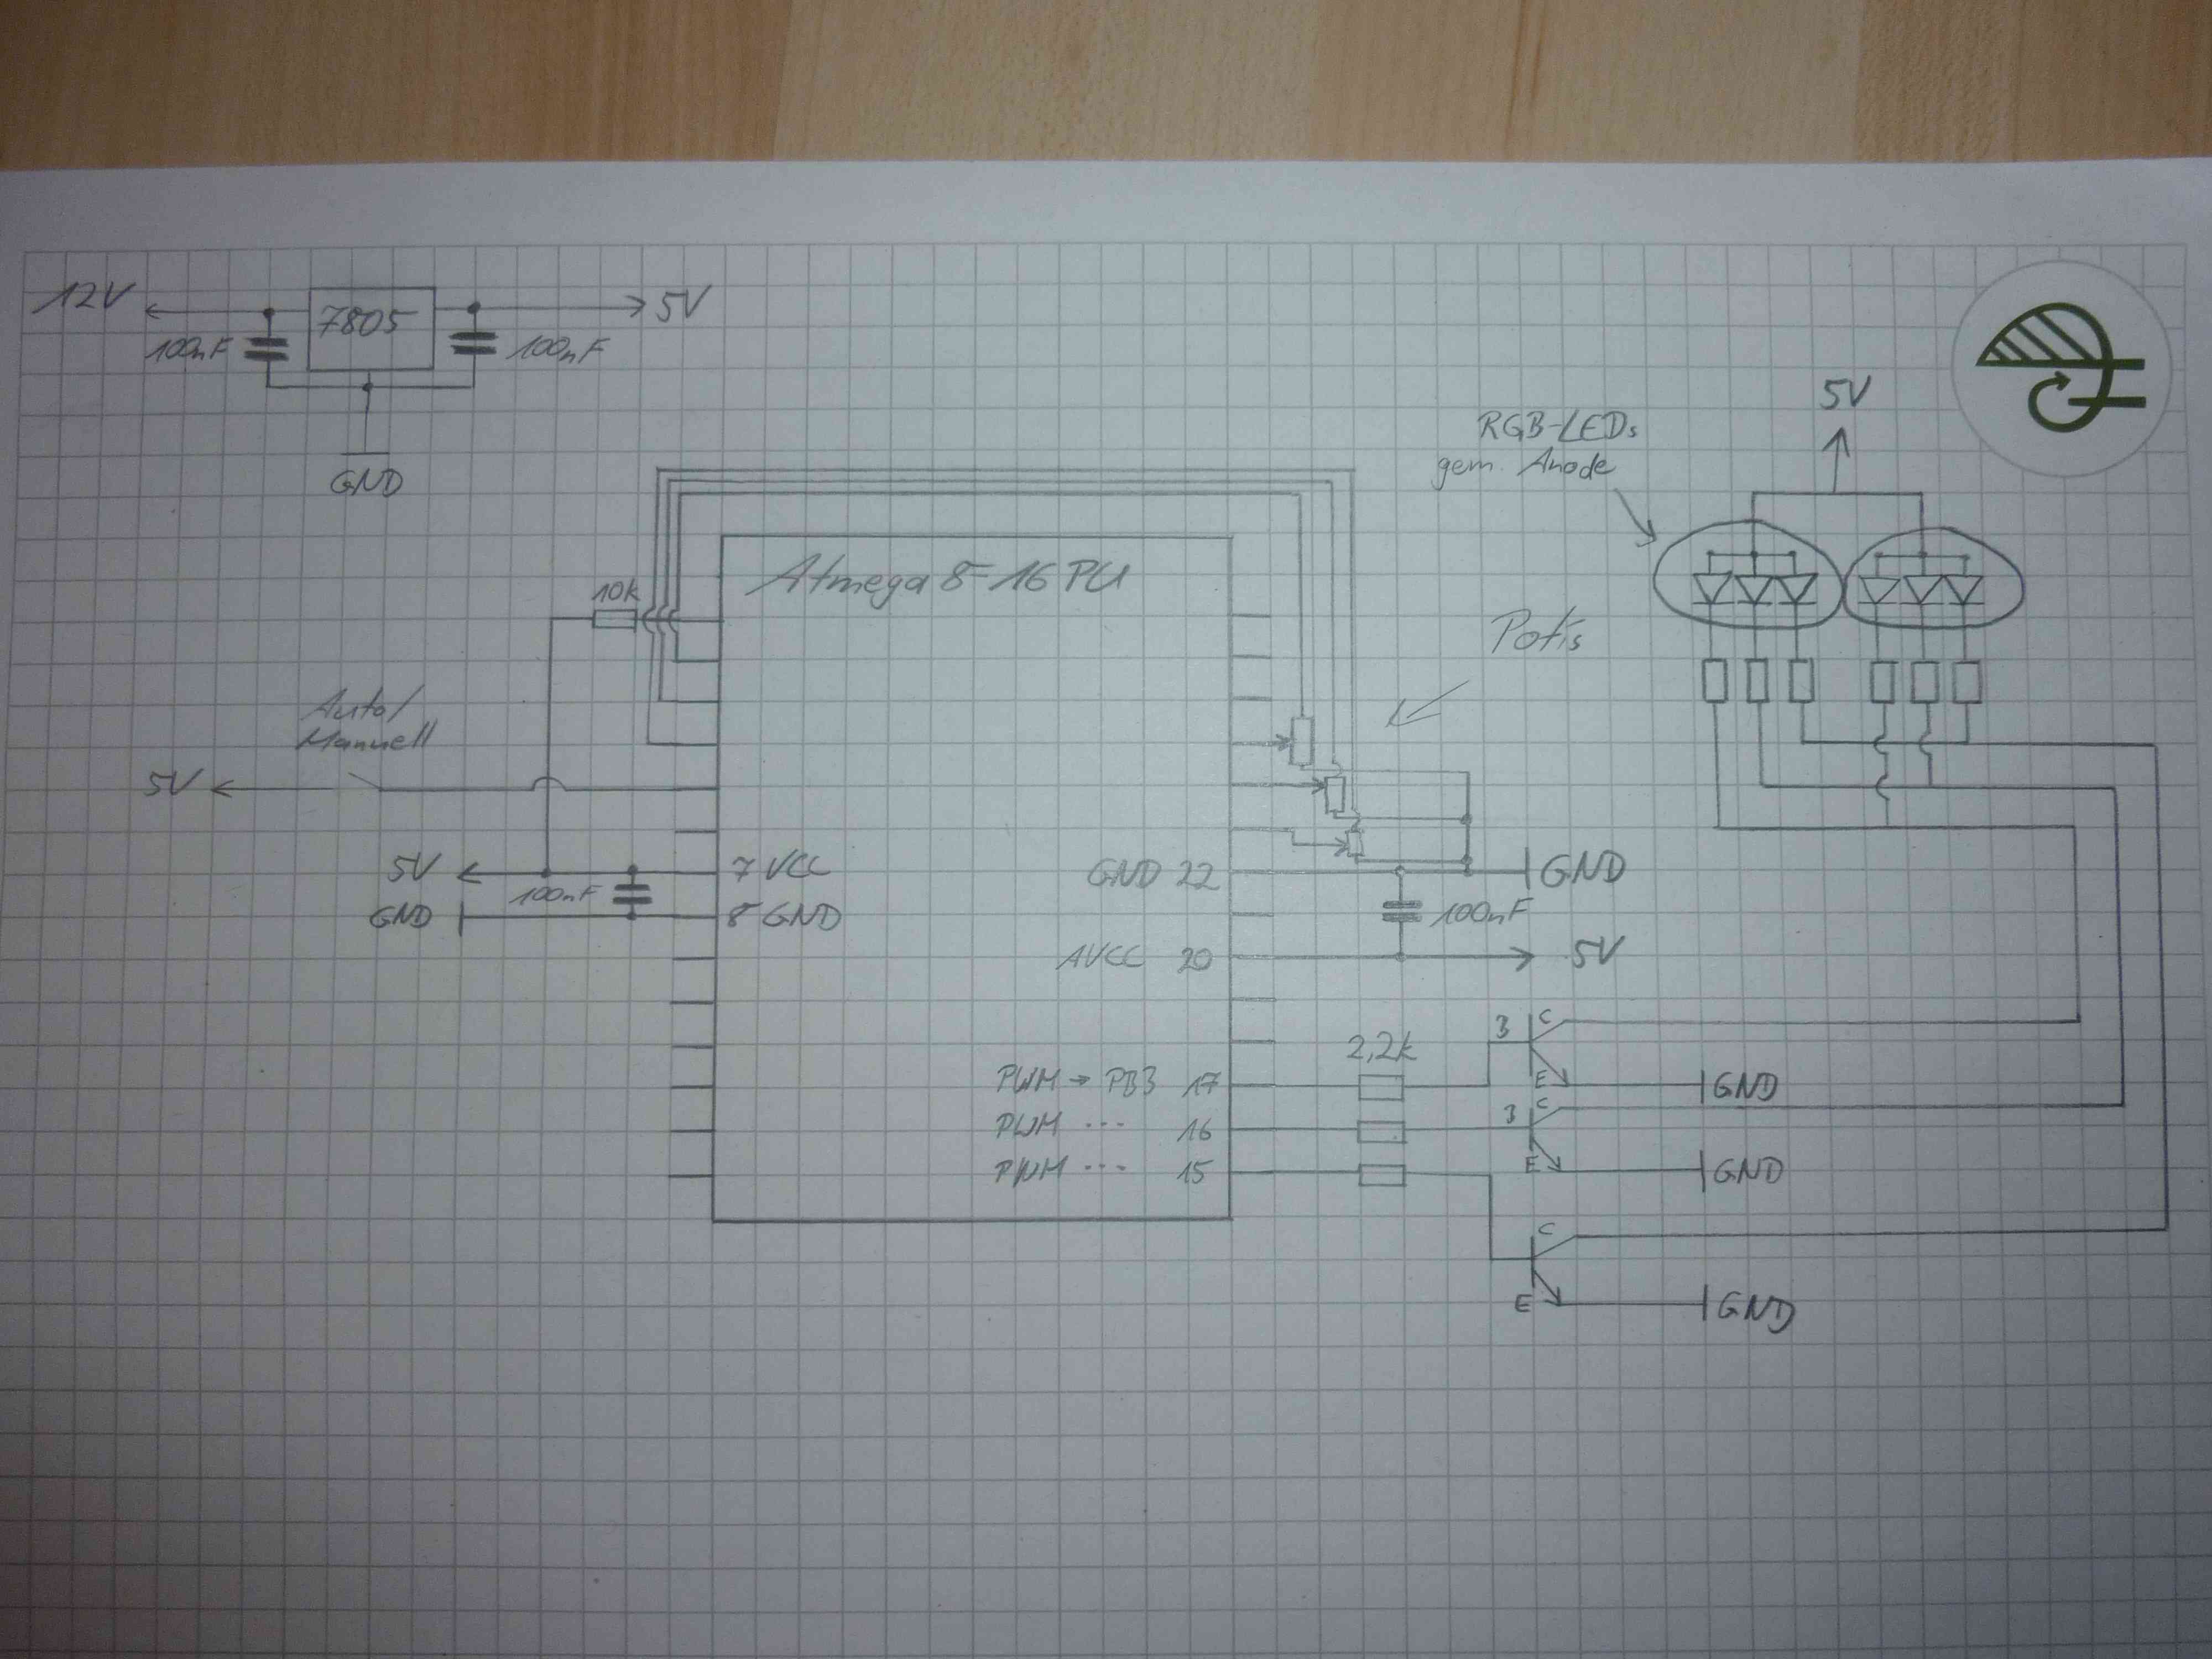 12V
7805
5V
100nF
100nF
GND
RGB-LEDs
gem. Anode
5V
Atmega 8-16PU
10k
Potis
Auto/
Manuell
5V
5V
100nF
GND
7 VCC
8 GND
GND 22
GND
100nF
AVCC 20
5V
2,2k
PWM → PB3 17
PWM --- 16
PWM --- 15
B
C
E
GND
B
C
E
GND
C
E
GND